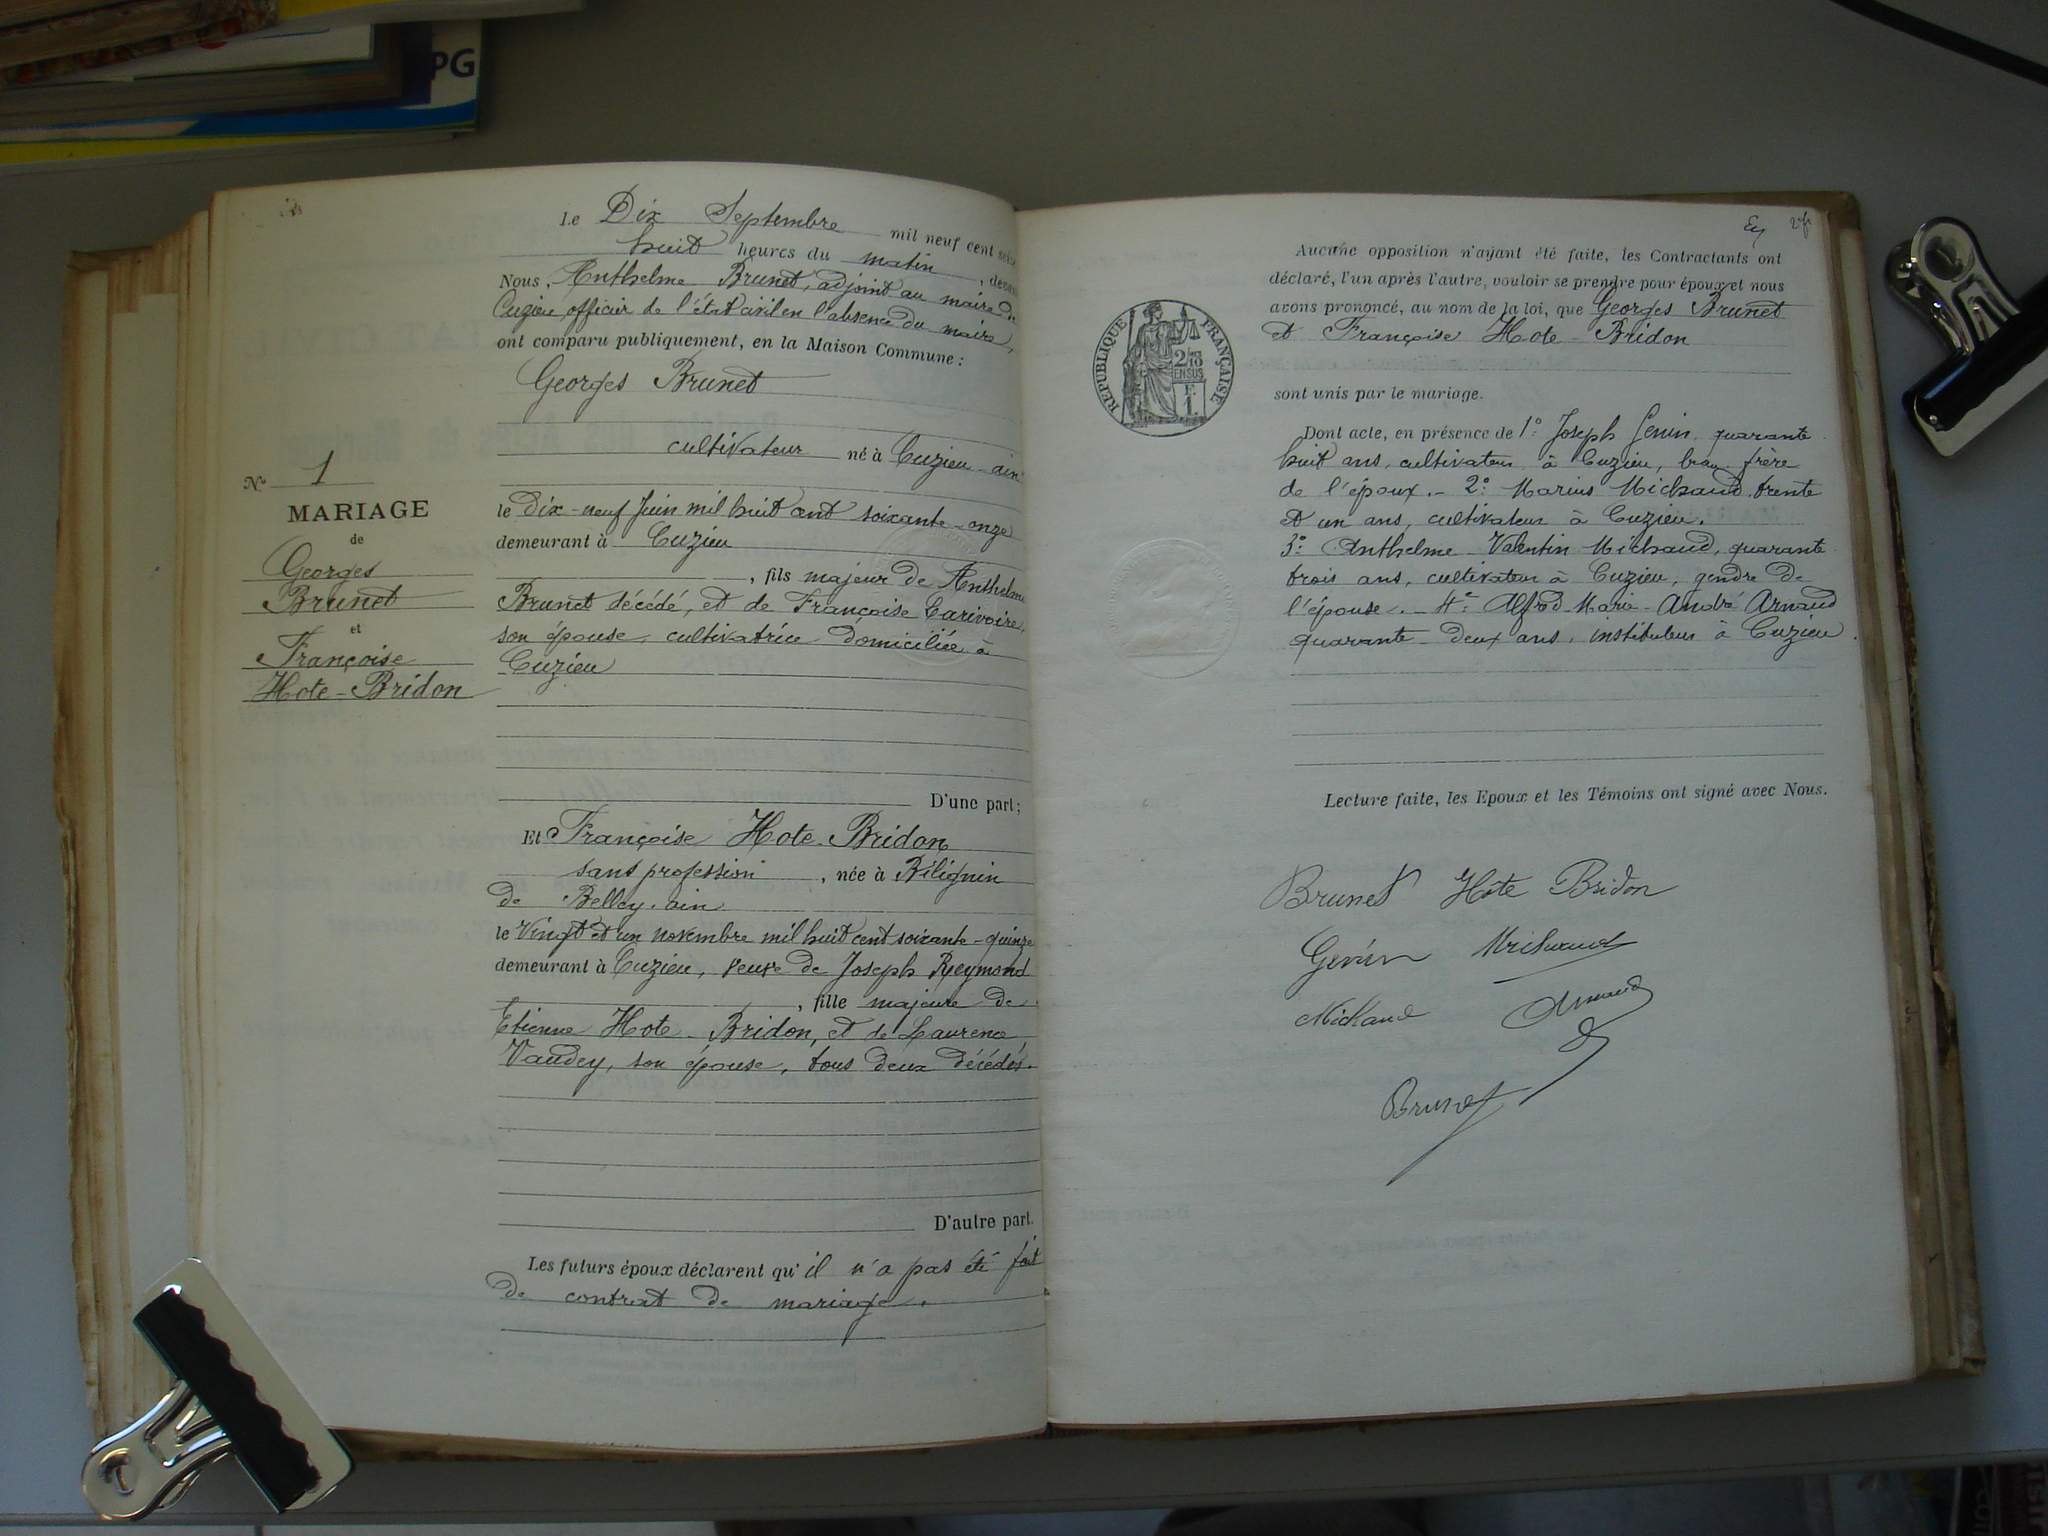 PG
Le Dix Septembre mil neuf cent seize
huit heures du matin, devant
Nous, Anthelme Brunet, adjoint au maire de
Cuzieu officier de l'état civil en l'absence du maire,
ont comparu publiquement, en la Maison Commune :
Georges Brunet
cultivateur né à Cuzieu - ain
le dix-neuf Juin mil huit cent soixante-onze
demeurant à Cuzieu
, fils majeur de Anthelme
Brunet décédé, et de Françoise Carivoire,
son épouse, cultivatrice domiciliée à
Cuzieu
D'une part ;
Et Françoise Hote-Bridon
sans profession, née à Bilignin
de Belley. ain
le Vingt et un novembre mil huit cent soixante-quinze
demeurant à Cuzieu, veuve de Joseph Reymond
, fille majeure de
Etienne Hote-Bridon, et de Laurence
Vaudey, son épouse, tous deux décédés.
D'autre part.
Les futurs époux déclarent qu'il n'a pas été fait
de contrat de mariage.
N° 1
MARIAGE
de
Georges
Brunet
et
Françoise
Hote-Bridon
Aucune opposition n'ayant été faite, les Contractants ont
déclaré, l'un après l'autre, vouloir se prendre pour époux et nous
avons prononcé, au nom de la loi, que Georges Brunet
et Françoise Hote-Bridon
sont unis par le mariage.
Dont acte, en présence de 1° Joseph Genin, quarante
huit ans, cultivateur à Cuzieu, beau-frère
de l'époux. - 2° Marius Michaud, trente
et un ans, cultivateur à Cuzieu.
3° Anthelme Valentin Michaud, quarante
trois ans, cultivateur à Cuzieu, gendre de
l'épouse. - 4° Alfred Marie-André Arnaud
quarante-deux ans, instituteur à Cuzieu.
Lecture faite, les Epoux et les Témoins ont signé avec Nous.
Brunet Hote Bridon
Genin Michaud
Michaud Arnaud
Brunet
RÉPUBLIQUE FRANÇAISE
2/10
EN SUS
F
1.